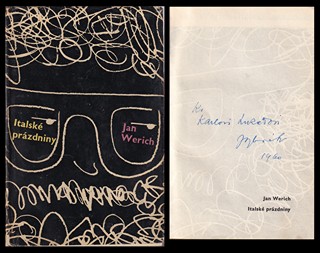 Italské
prázdniny
Jan
Werich
Karlovi
1960
Jan Werich
Italské prázdniny